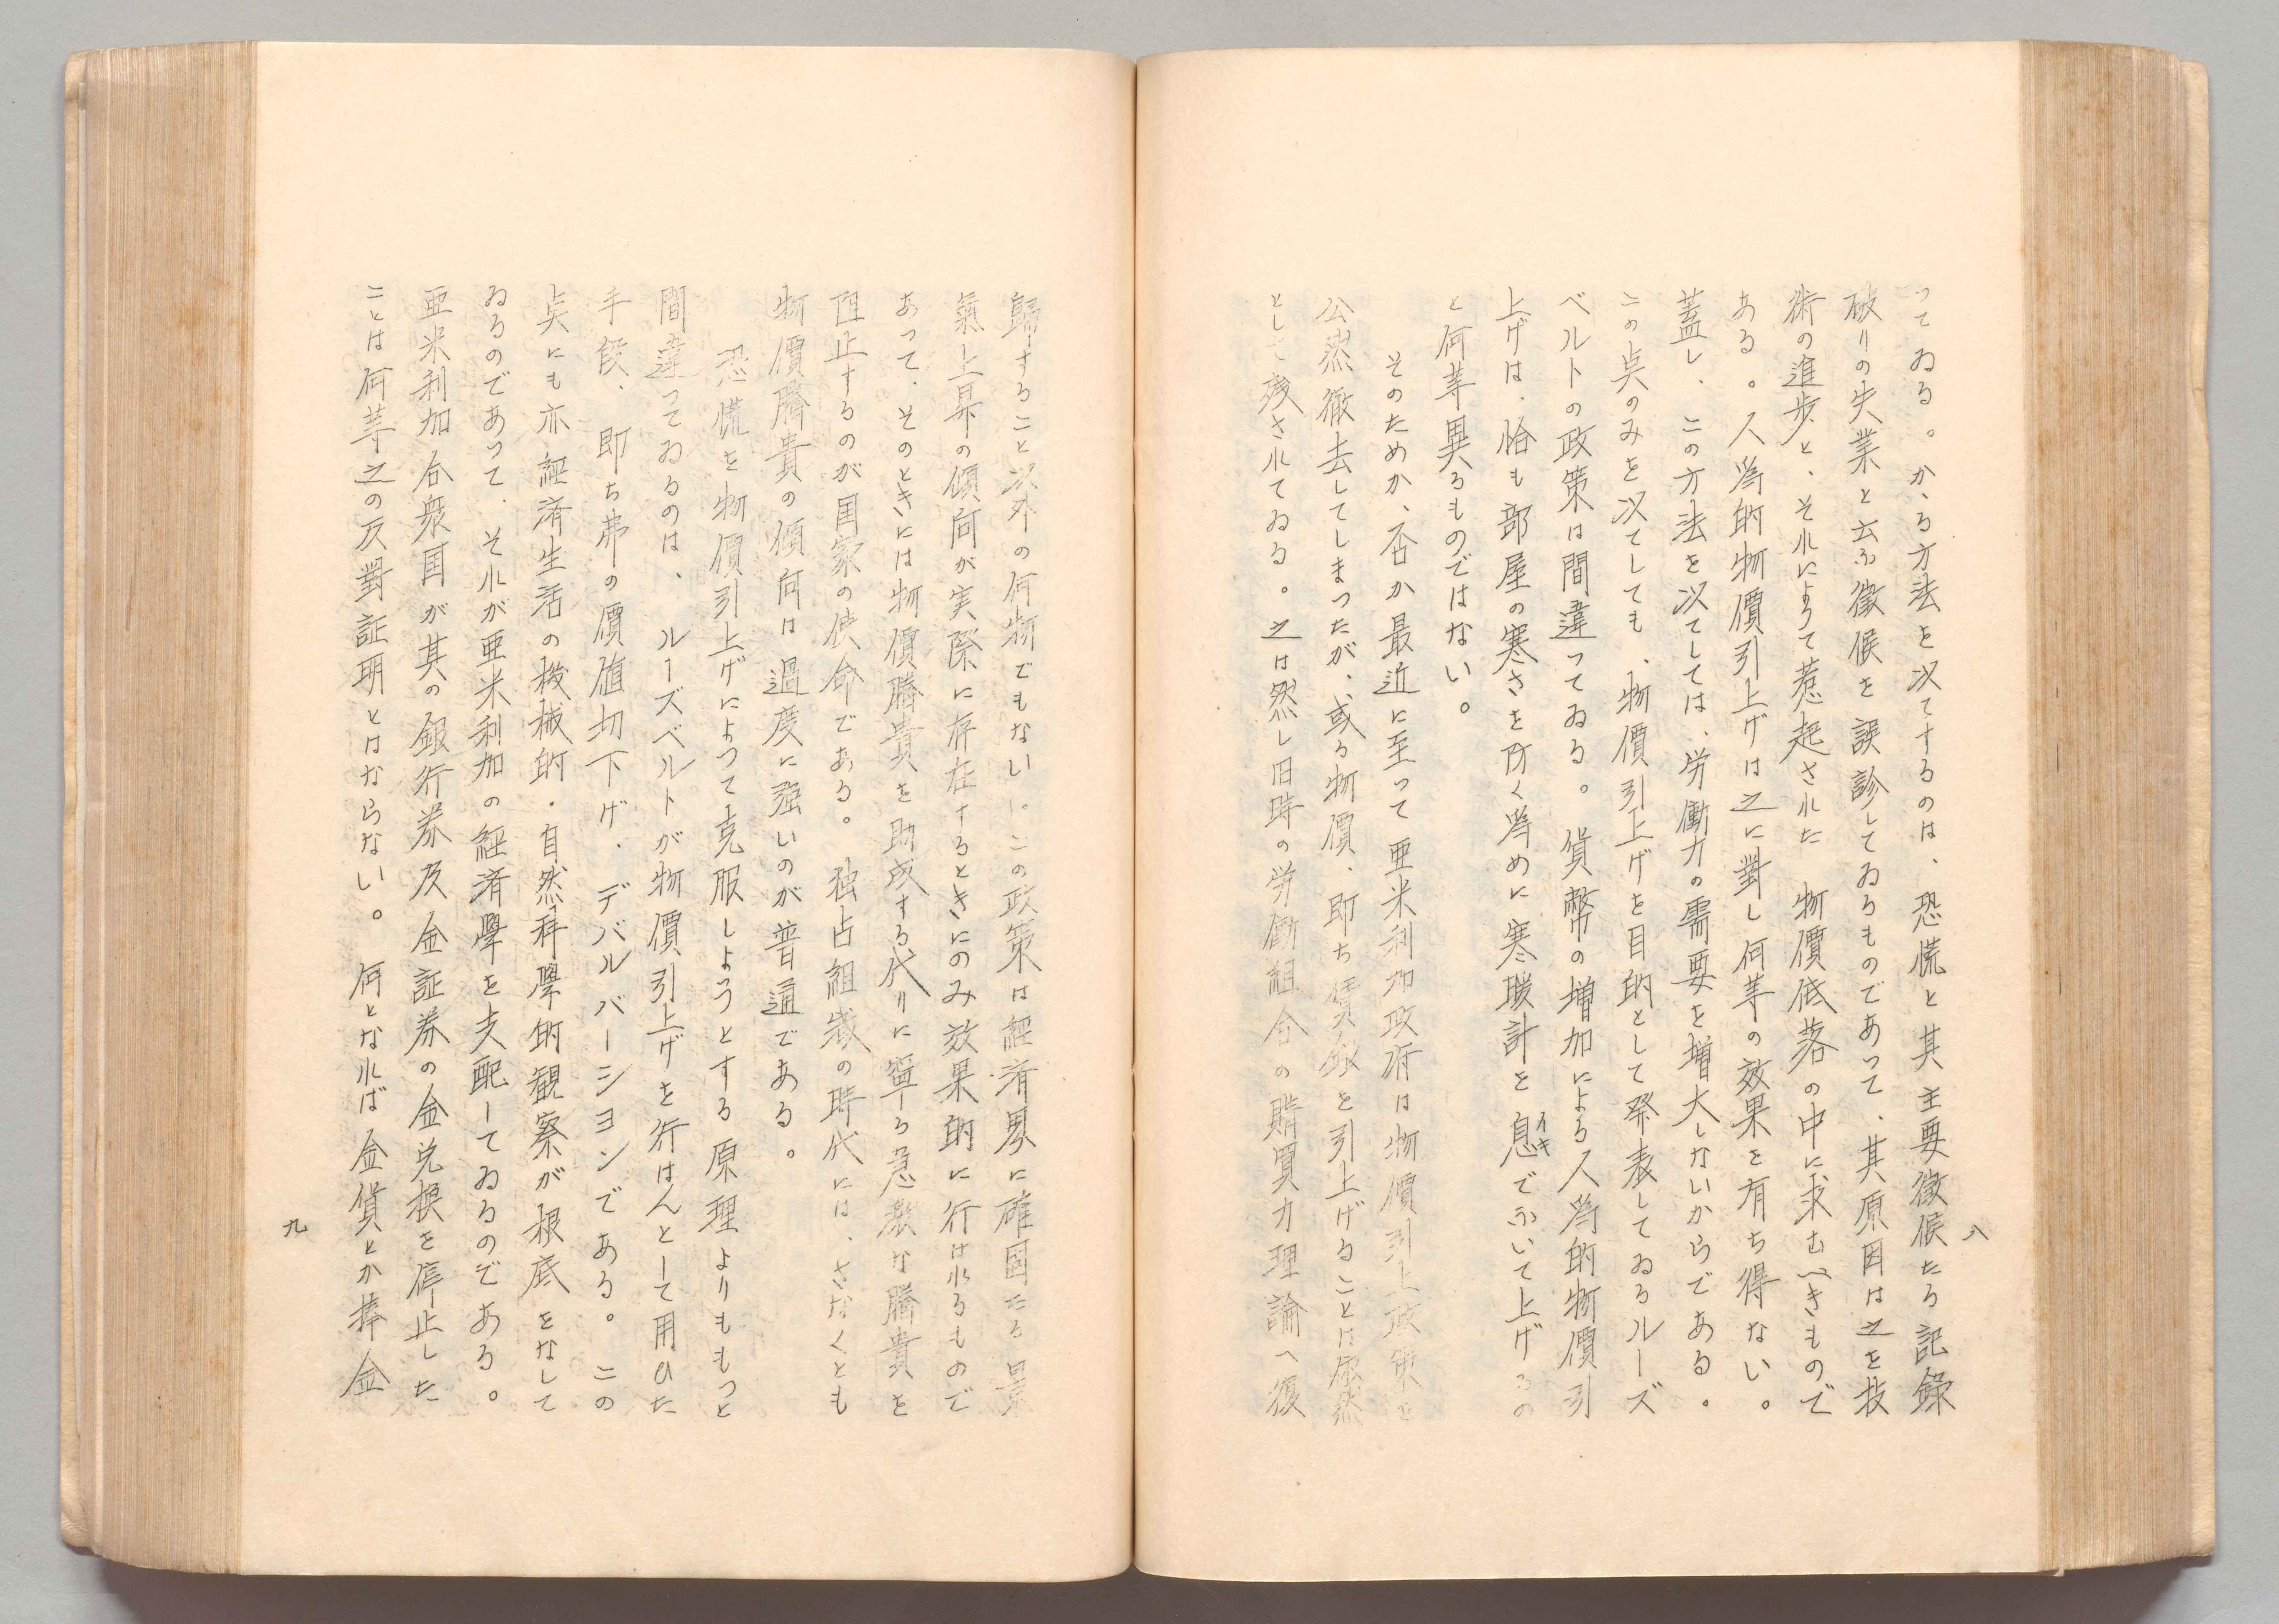 八
つてゐる。かゝる方法を以てするのは、恐慌と其主要徴候たる記錄
破りの失業と云ふ徴候を誤診してゐるものであつて、其原因は之を技
術の進歩と、それによつて惹起された　物價低落の中に求むべきもので
ある。人爲的物價引上げは之に對し何等の效果を有ち得ない。
蓋し、この方法を以てしては、労働力の需要を増大しないからである。
この点のみを以てしても、物價引上げを目的として発表してゐるルーズ
ベルトの政策は間違つてゐる。貨幣の増加による人爲的物價引
上げは、恰も部屋の寒さを防く爲めに寒暖計を息イキでふいて上げるの
と何等異るものではない。
そのためか、否か最近に至つて亜米利加政府は物價引上政策を
公然徹去してしまつたが、或る物價、即ち賃銀を引上げることは依然
として残されてゐる。之は然し旧時の労働組合の購買力理論へ復
歸すること以外の何物でもない。この政策は經済界に確固たる景
氣上昇の傾向が実際に存在するときにのみ效果的に行はれるもので
あつて、そのときには物價騰貴を助成する代りに寧ろ急激な騰貴を
阻止するのが国家の使命である。独占組織の時代には、さなくとも
物價騰貴の傾向は過度に強いのが普通である。
恐慌を物價引上げによつて克服しようとする原理よりももつと
間違つてゐるのは、ルーズベルトが物價引上げを行はんとして用ひた
手段、即ち弗の價値切下げ、デバルバーシヨンである。この
点にも亦經済生活の機械的・自然科學的観察が根底をなして
ゐるのであつて、それが亜米利加の經済學を支配してゐるのである。
亜米利加合衆国が其の銀行券及金証券の金兌換を停止した
ことは何等之の反對証明とはならない。何となれば金貨とか棒金
九